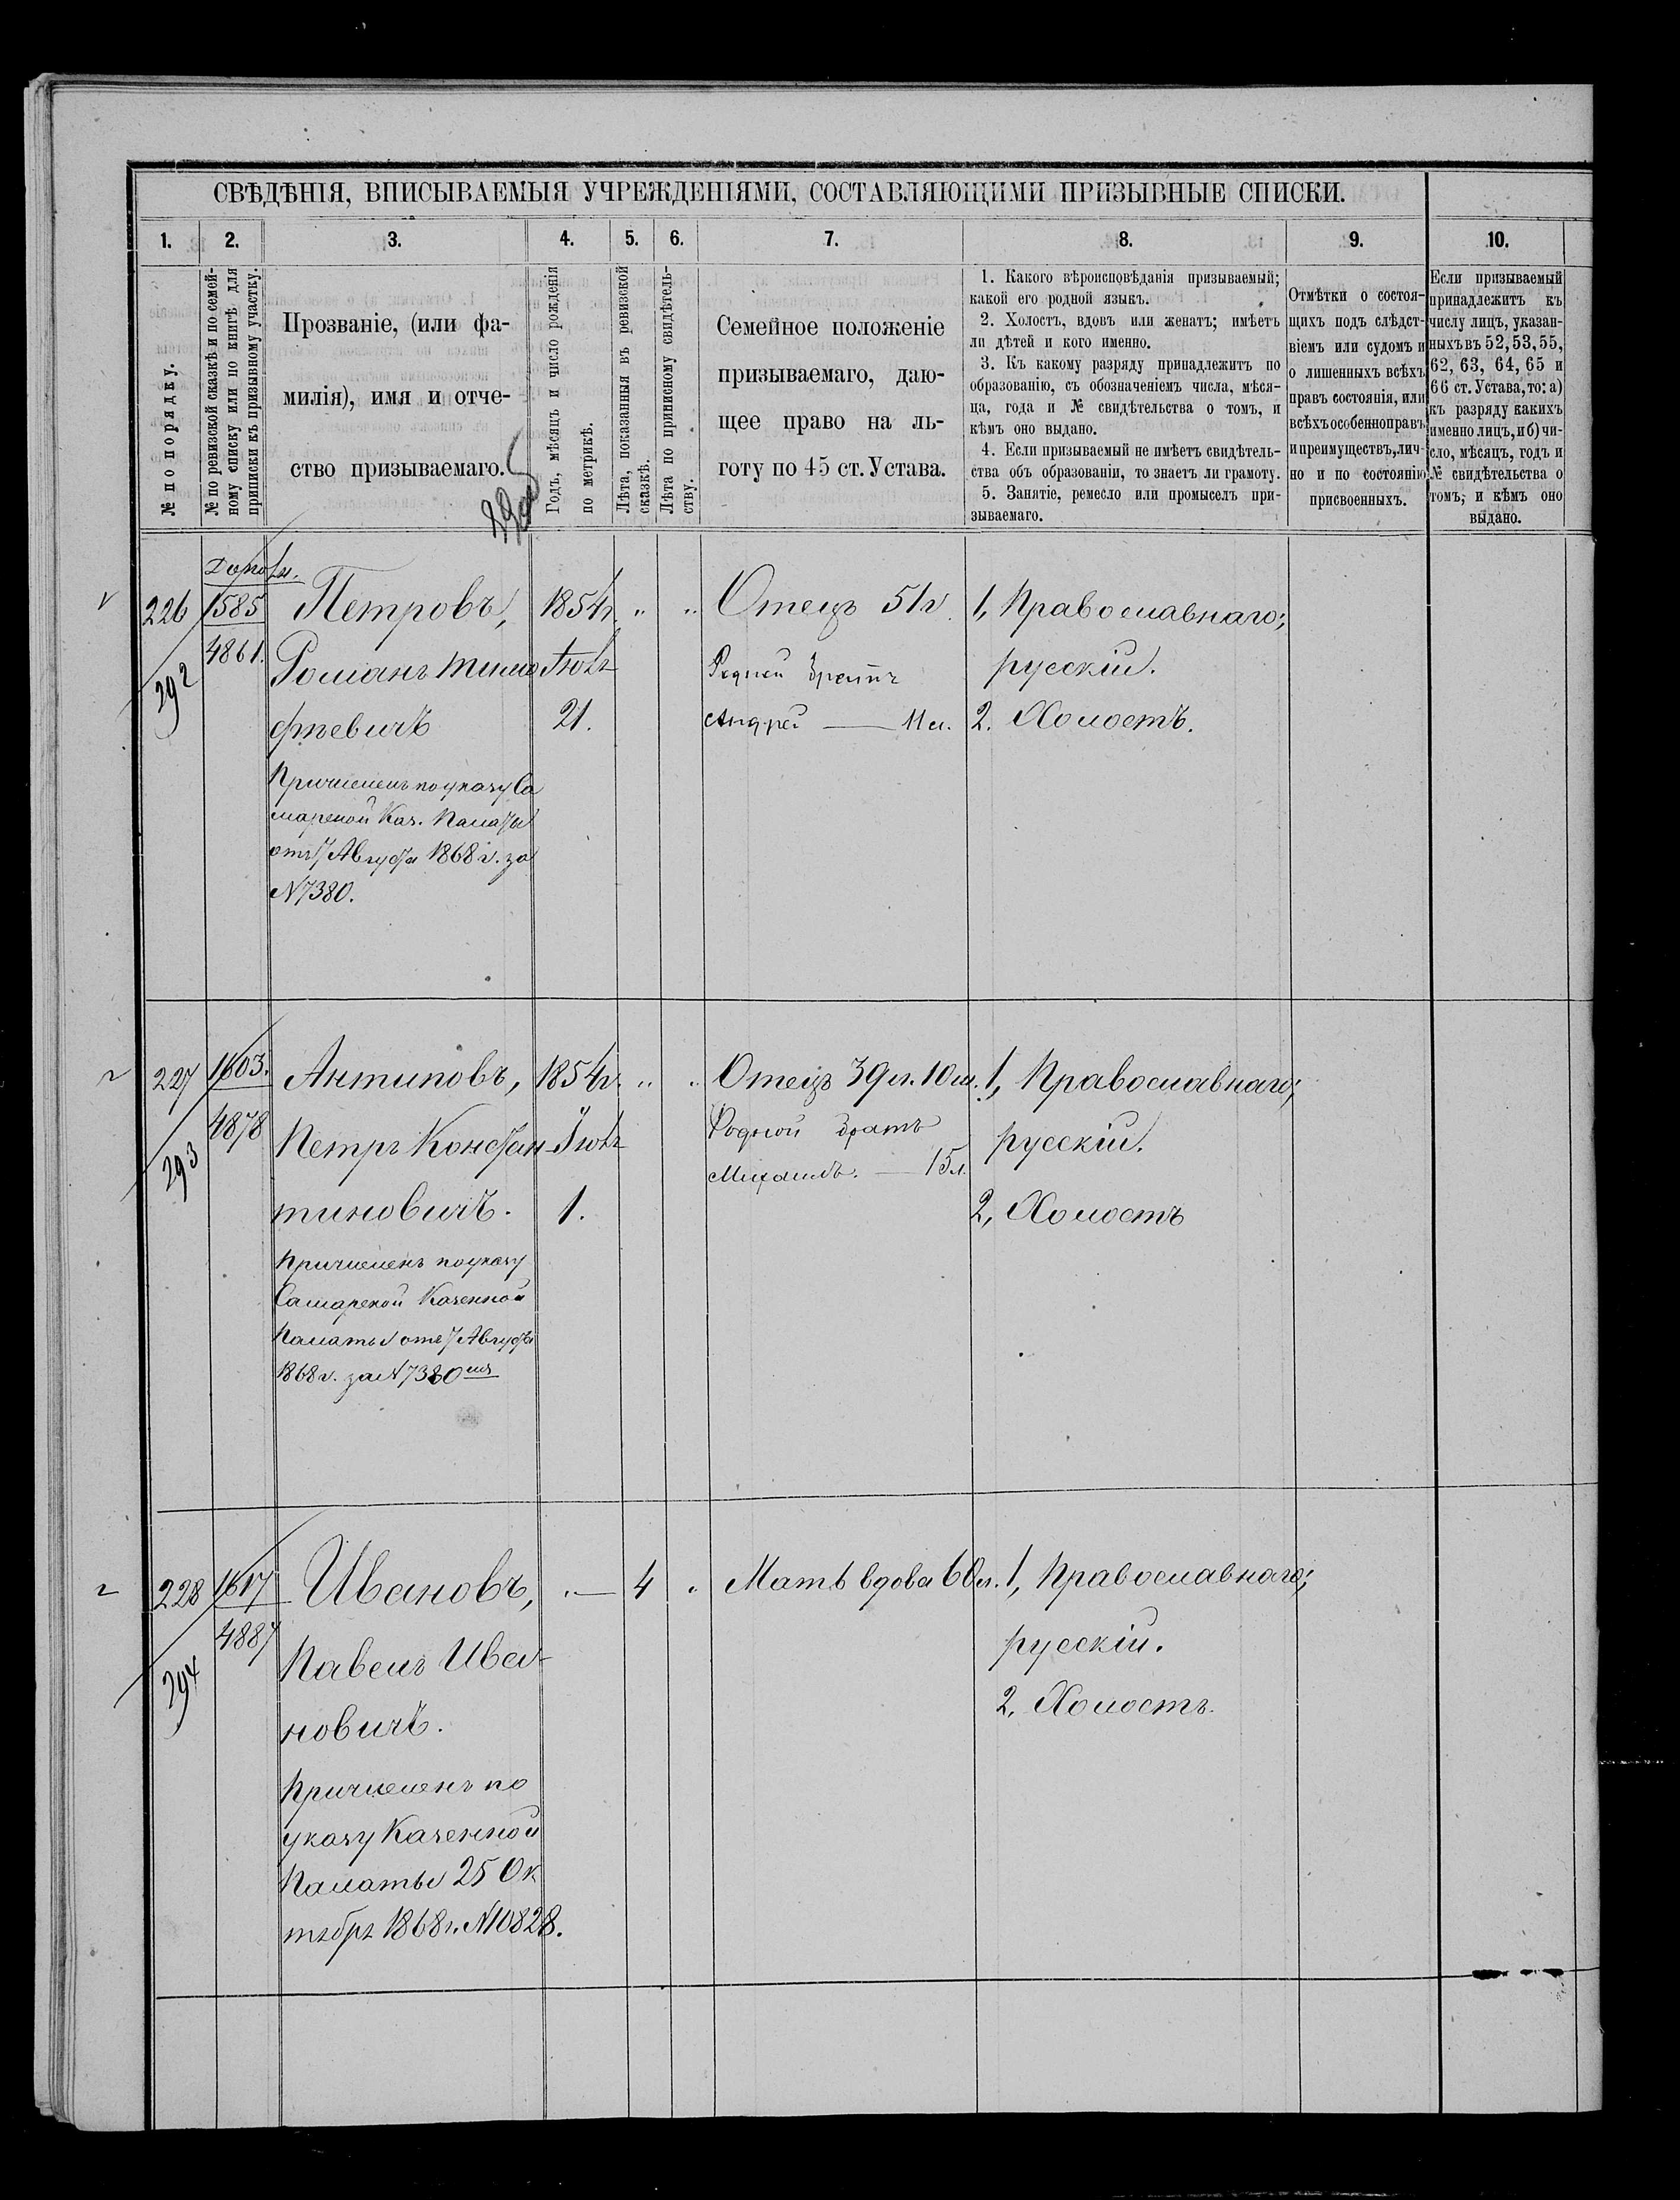 СВѢДѢНІЯ, ВПИСЫВАЕМЫЯ УЧРЕЖДЕНІЯМИ, СОСТАВЛЯЮЩИМИ ПРИЗЫВНЫЕ СПИСКИ.
1.
2.
3.
4.
5.
6.
7.
8.
9.
10.
№ по порядку.
№ по ревизской сказкѣ и по семей-
ному списку или по книгѣ для
приписки къ призывному участку.
Прозваніе, (или фа-
милія), имя и отче-
ство призываемаго.
Годъ, мѣсяцъ и число рожденія
по метрикѣ.
Лѣта, показанныя въ ревизской
сказкѣ.
Лѣта по приписному свидѣтель-
ству.
Семейное положеніе
призываемаго, даю-
щее право на ль-
готу по 45 ст. Устава.
1. Какого вѣроисповѣданія призываемый;
какой его родной языкъ.
2. Холостъ, вдовъ или женатъ; имѣетъ
ли дѣтей и кого именно.
3. Къ какому разряду принадлежитъ по
образованію, съ обозначеніемъ числа, мѣся-
ца, года и № свидѣтельства о томъ, и
кѣмъ оно выдано.
4. Если призываемый не имѣетъ свидѣтель-
ства объ образованіи, то знаетъ ли грамоту.
5. Занятіе, ремесло или промыселъ при-
зываемаго.
Отмѣтки о состоя-
щихъ подъ слѣдст-
віемъ или судомъ и
о лишенныхъ всѣхъ
правъ состоянія, или
всѣхъ особенно правъ
и преимуществъ, лич-
но и по состоянію
присвоенныхъ.
Если призываемый
принадлежитъ къ
числу лицъ, указан-
ныхъ въ 52, 53, 55,
62, 63, 64, 65 и
66 ст. Устава, то: а)
къ разряду какихъ
именно лицъ, и б) чи-
сло, мѣсяцъ, годъ и
№ свидѣтельства о
томъ, и кѣмъ оно
выдано.
226
292
1585
4861.
Петровъ,
Романъ Тимо
фѣевичъ
Причисленъ по указу Са
марской Каз. Палаты
отъ 7 Августа 1868 г. за
№ 7380.
1854 г.
21.
Отецъ 51 г.
Родной братъ
Андрей — 11 л.
1, Православнаго;
русскій.
2. Холостъ.
227
293
1603.
4878
Антиповъ,
Петръ Констан-
тиновичъ.
Причисленъ по указу
Самарской Казенной
Палаты отъ 7 Августа
1868 г. за № 7380
1854 г.
1.
Отецъ 39 л. 10 м.
Родной братъ
Михаилъ. — 15 л.
1, Православнаго;
русскій.
2, Холостъ
228
294
1617
4887
Ивановъ,
Павелъ Ива-
новичъ.
Причисленъ по
указу Казенной
Палаты 25 Ок
тябр. 1868 г. № 10828.
4
Мать вдова 60 л.
1, Православнаго;
русскій.
2. Холостъ.